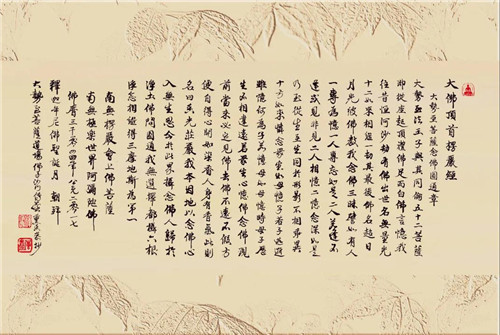 大佛頂首楞嚴經
大勢至菩薩念佛圓通章
大勢至法王子與其同倫五十二菩薩
即從座起頂禮佛足而白佛言憶我
往昔恒河沙劫有佛出世名無量光
十二如來相繼一劫其最後佛名超日
月光彼佛教我念佛三昧譬如有人
一專為憶一人專忘如是二人若逢不
逢或見非見二人相憶二憶念深如是
乃至從生至生同於形影不相乖異
十方如來憐念眾生如母憶子若子逃逝
雖憶何為子若憶母如母憶時母子歷
生不相違遠若眾生心憶佛念佛現
前當來必定見佛去佛不遠不假方
便自得心開如染香人身有香氣此則
名曰香光莊嚴我本因地以念佛心
入無生忍今於此界攝念佛人歸於
淨土佛問圓通我無選擇都攝六根
淨念相繼得三摩地斯為第一
南無楞嚴會上佛菩薩
南無極樂世界阿彌陀佛
佛曆三千零四十年公元二零一七
釋迦牟尼佛聖誕月
大勢至菩薩道場佛子